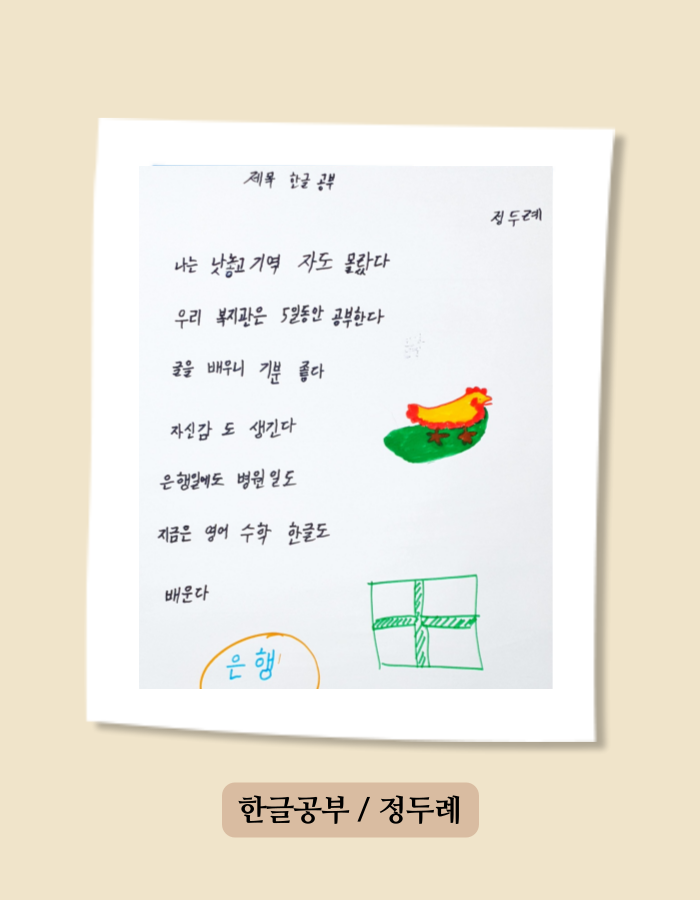 제목 한글 공부
정두레
나는 낫놓고 기역 자도 몰랐다
우리 복지관은 5일동안 공부한다
글을 배우니 기분 좋다
자신감 도 생긴다
은행일에도 병원 일도
지금은 영어 수학 한글도
배운다
은행
한글공부 / 정두례